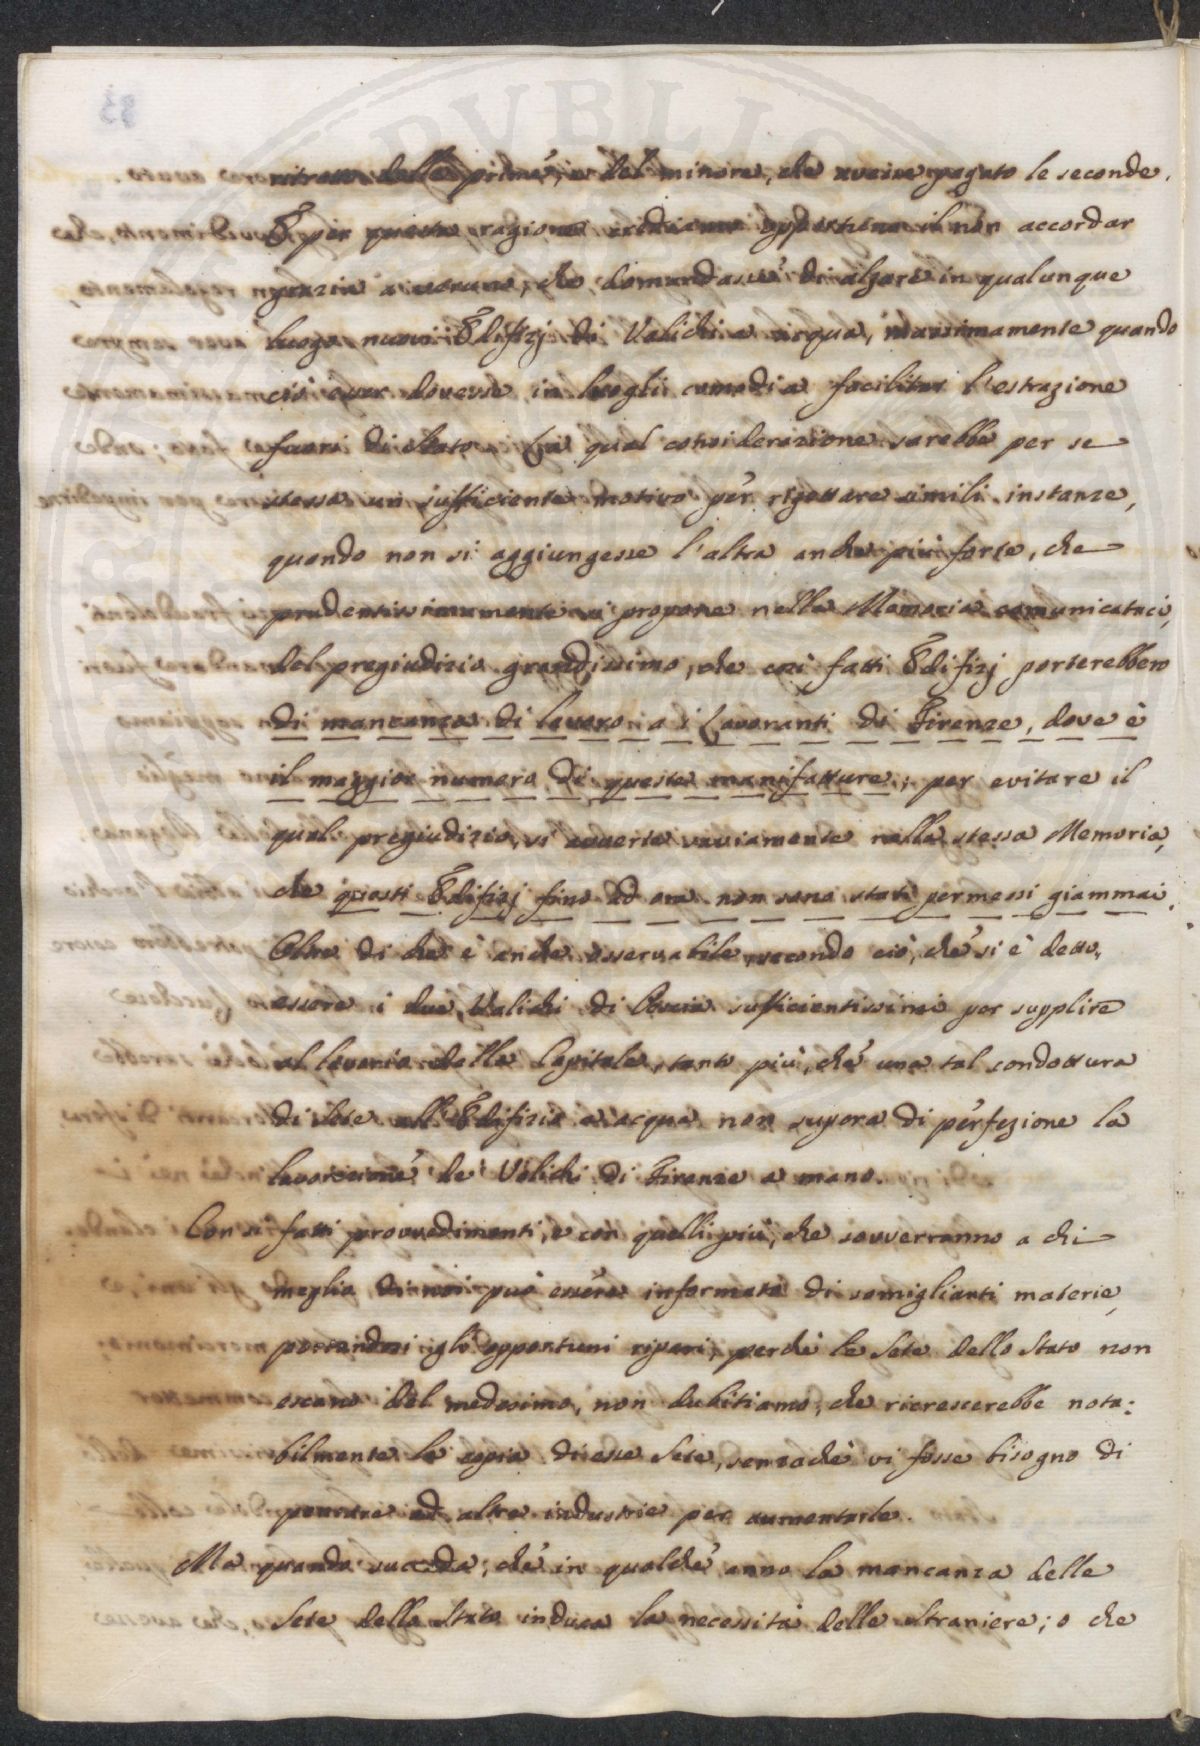 ritratto delle prime, e del minore, che aveva pagato le seconde.
E per questa ragione crediamo opportuno il non accordar
grazia a veruno, che domandasse di alzare in qualunque
luogo nuovi Edifizj di Valichi a acqua, massimamente quando
ciò esser dovesse in luoghi comodi a facilitar l'estrazione
fuori di Stato. La qual considerazione sarebbe per se
stessa un sufficiente motivo per rigettare simili instanze,
quando non si aggiungesse l'altra anche più forte, che
prudentissimamente si propone nella Memoria comunicataci,
del pregiudizio grandissimo, che così fatti Edifizj porterebbero
di mancanza di lavoro a i Lavoranti di Firenze, dove è
il maggior numero di queste manifatture; per evitare il
qual pregiudizio, si avverte saviamente nella stessa Memoria,
che questi Edifizj fino ad ora non sono stati permessi giammai.
Oltre di che è anche osservabile, secondo ciò, che si è detto,
essere i due Valichi di sufficientissimi per supplire
al lavorio della Capitale, tanto più, che una tal condottura
di Sete all'Edifizio a acqua non supera di perfezione la
lavorazione de' Valichi di Firenze a mano.
Con sì fatti provvedimenti, e con quelli più, che sovverranno a chi
meglio di noi può essere informato di somiglianti materie,
portandosi gli opportuni ripari, perchè le Sete dello Stato non
escano del medesimo, non dubitiamo, che ricrescerebbe nota:
bilmente la copia di esse Sete, senzachè vi fosse bisogno di
pensare ad altre industrie per aumentarle.
Ma quando succeda, che in qualche anno la mancanza delle
Sete dello Stato induca la necessità delle straniere; o che
PVBLIC